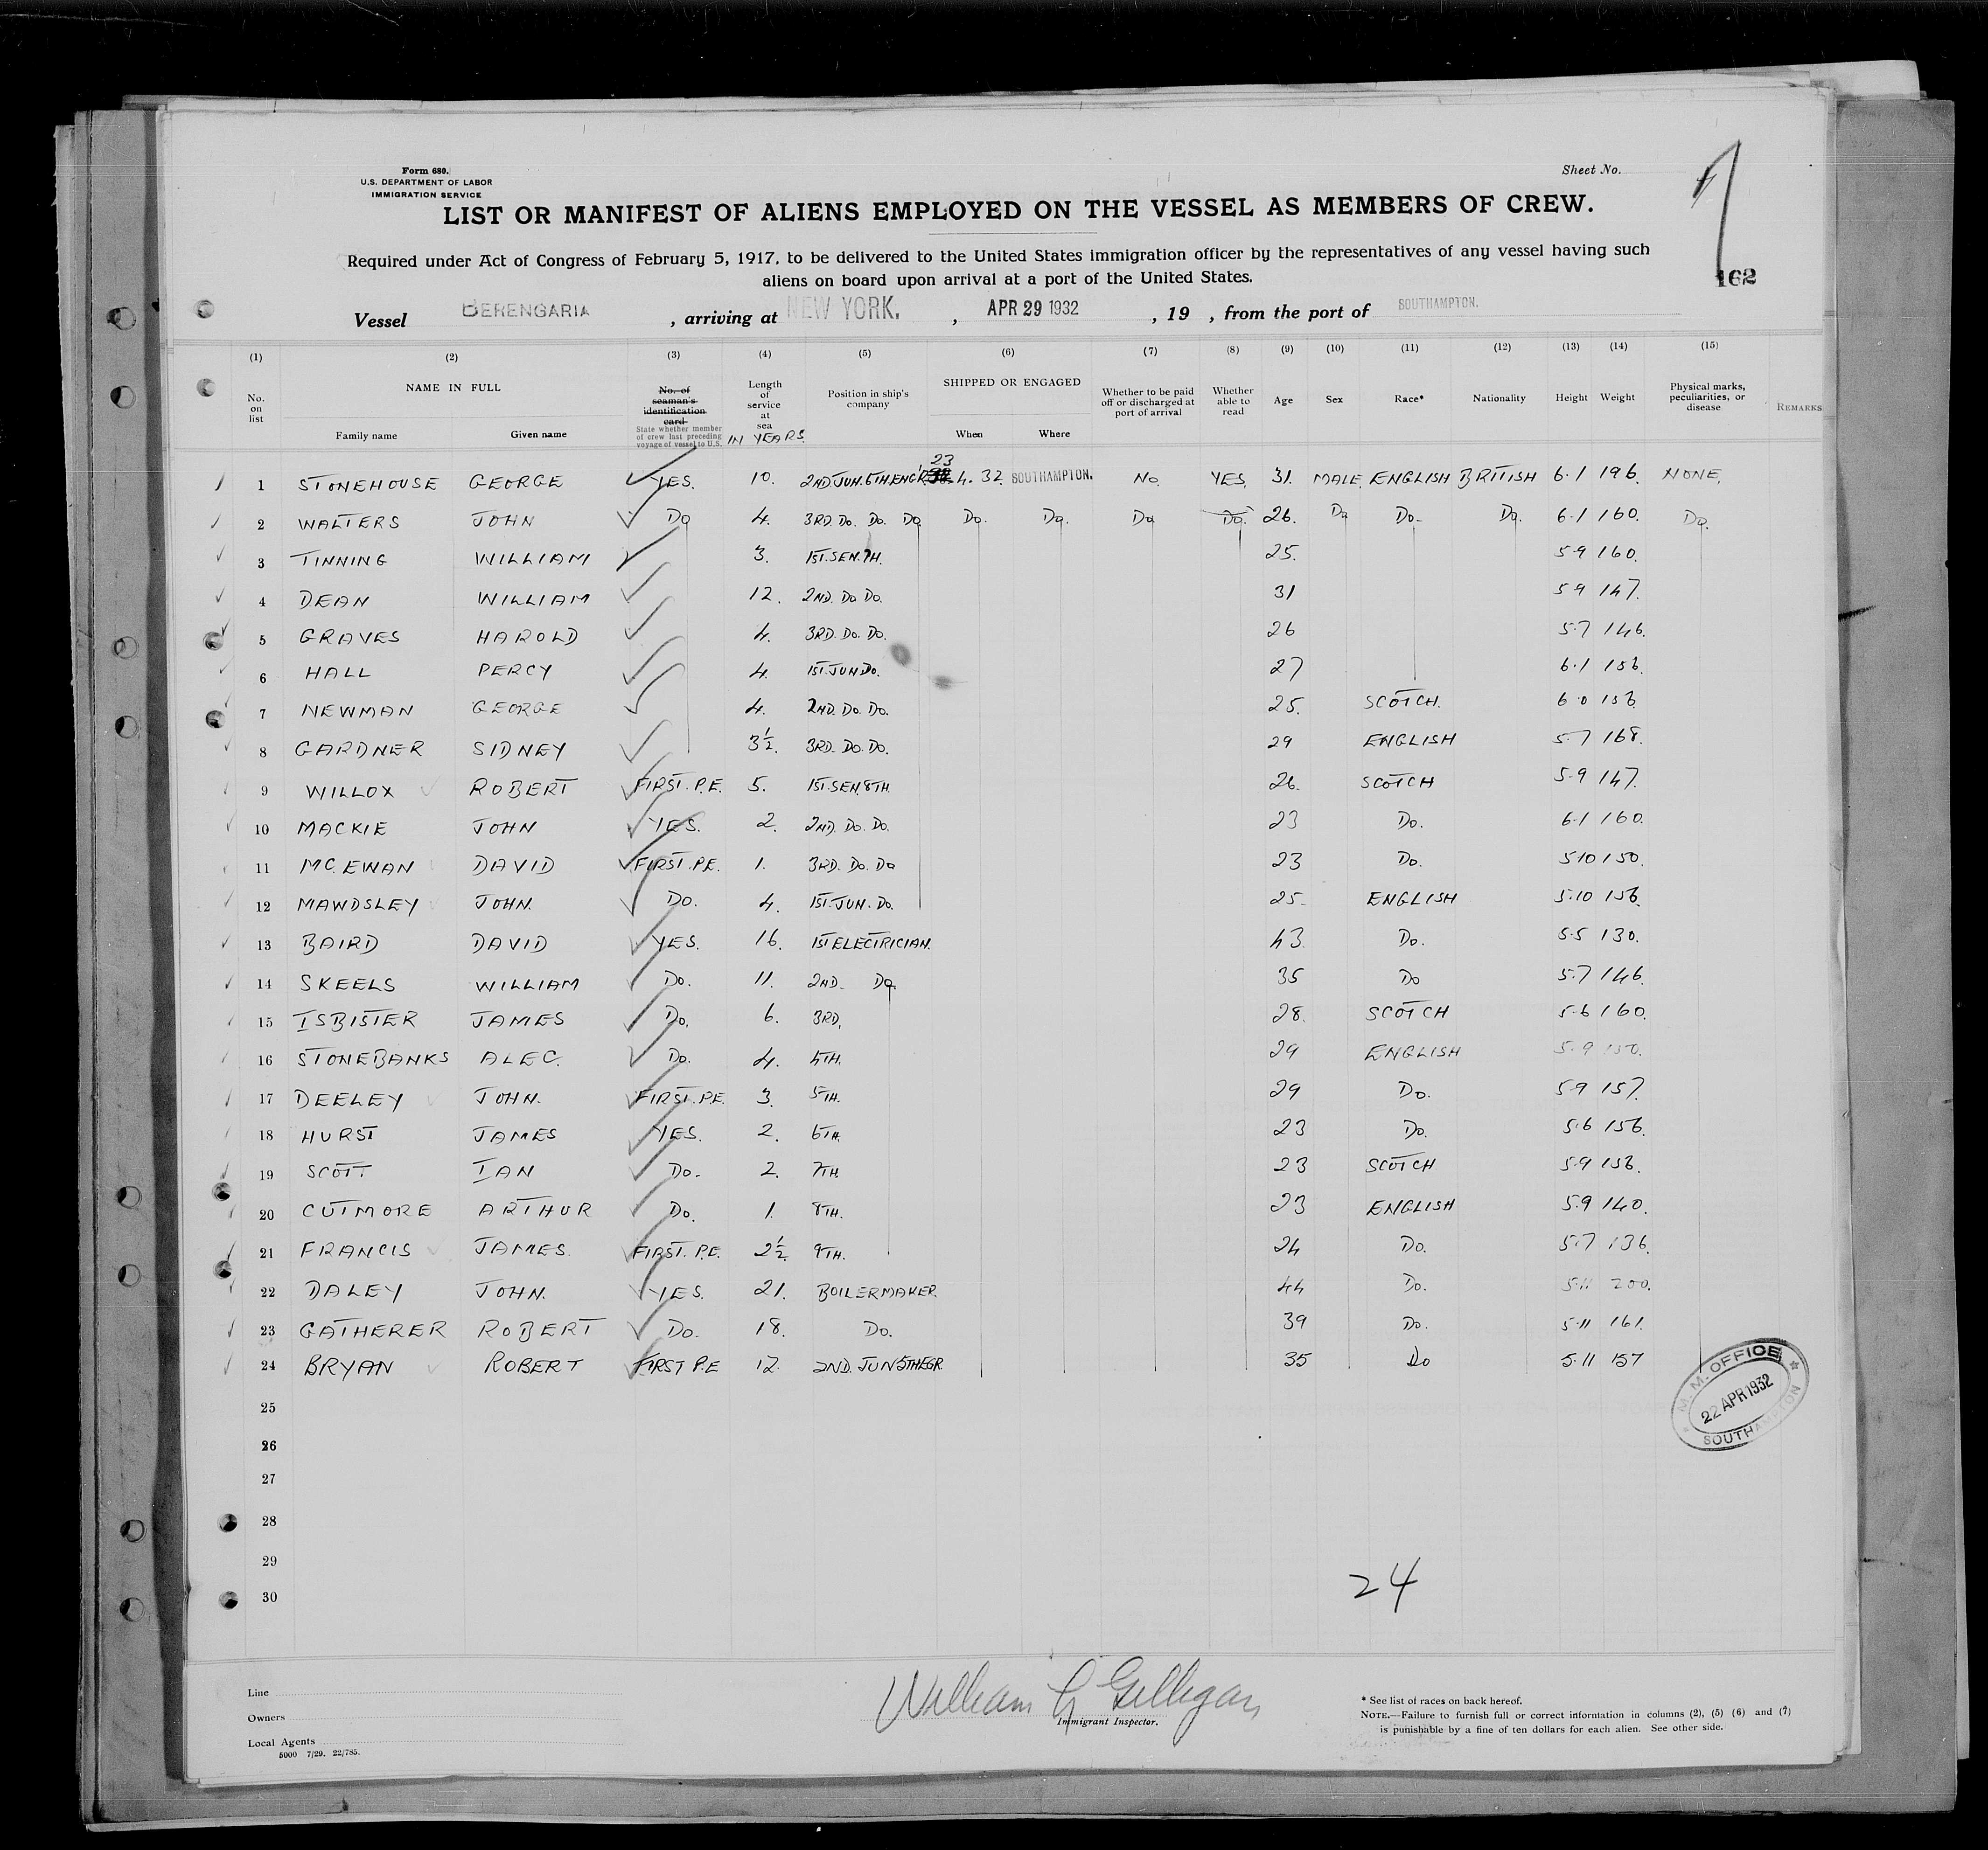 Form 680.
U.S. DEPARTMENT OF LABOR
IMMIGRATION SERVICE
Sheet No.
LIST OR MANIFEST OF ALIENS EMPLOYED ON THE VESSEL AS MEMBERS OF CREW.
Required under Act of Congress of February 5, 1917, to be delivered to the United States immigration officer by the representatives of any vessel having such
aliens on board upon arrival at a port of the United States.
162
Vessel BERENGARIA , arriving at NEW YORK. , APR 29 1932 , 19 , from the port of SOUTHAMPTON.
(1) (2) (3) (4) (5) (6) (7) (8) (9) (10) (11) (12) (13) (14) (15)
No. on list NAME IN FULL Family name Given name No. of seaman's identification card State whether member of crew last preceding voyage of vessel to U.S. Length of service at sea IN YEARS. Position in ship's company SHIPPED OR ENGAGED When Where Whether to be paid off or discharged at port of arrival Whether able to read Age Sex Race* Nationality Height Weight Physical marks, peculiarities, or disease REMARKS
1 STONEHOUSE GEORGE YES. 10. 2ND JUN. 6TH ENG'R. 23 4. 32 SOUTHAMPTON. No. YES. 31. MALE. ENGLISH BRITISH 6.1 196. NONE.
2 WALTERS JOHN Do 4. 3RD. Do. Do. Do Do. Do. Do Do. 26. Do Do. Do. 6.1 160. Do.
3 TINNING WILLIAM 3. 1ST. SEN. 7H. 25. 5.9 160.
4 DEAN WILLIAM 12. 2ND. Do Do. 31 5.9 147.
5 GRAVES HAROLD 4. 3RD. Do. Do. 26 5.7 146.
6 HALL PERCY 4. 1ST. JUN Do. 27 6.1 156.
7 NEWMAN GEORGE 4. 2ND. Do. Do. 25. SCOTCH. 6.0 156.
8 GARDNER SIDNEY 3½. 3RD. Do. Do. 29 ENGLISH 5.7 168.
9 WILLOX ROBERT FIRST. P.E. 5. 1ST. SEN. 8TH. 26. SCOTCH 5.9 147.
10 MACKIE JOHN YES. 2. 2ND. Do. Do. 23 Do. 6.1 160.
11 MC. EWAN DAVID FIRST. P.E. 1. 3RD. Do. Do 23 Do. 5.10 150.
12 MAWDSLEY JOHN. Do. 4. 1ST. JUN. Do. 25. ENGLISH 5.10 156.
13 BAIRD DAVID YES. 16. 1ST ELECTRICIAN. 43. Do. 5.5 130.
14 SKEELS WILLIAM Do. 11. 2ND. Do. 35 Do 5.7 146.
15 ISBISTER JAMES Do. 6. 3RD. 28. SCOTCH 5.6 160.
16 STONEBANKS ALEC. Do. 4. 4TH. 29 ENGLISH 5.9 150.
17 DEELEY JOHN. FIRST. P.E. 3. 5TH. 29 Do. 5.9 157.
18 HURST JAMES YES. 2. 6TH. 23 Do. 5.6 156.
19 SCOTT. IAN Do. 2. 7TH 23 SCOTCH 5.9 156.
20 CUTMORE ARTHUR Do. 1. 8TH. 23 ENGLISH 5.9 140.
21 FRANCIS JAMES. FIRST. P.E. 2½. 9TH. 24 Do. 5.7 136.
22 DALEY JOHN. YES. 21. BOILERMAKER. 44 Do. 5.11 200.
23 GATHERER ROBERT Do. 18. Do. 39 Do. 5.11 161.
24 BRYAN ROBERT FIRST P.E 12. 2ND. JUN 5THEGR. 35 Do 5.11 157
25
26
27
28
29
30
M. M. OFFICE
22 APR 1932
SOUTHAMPTON
24
William G Gilligan
Immigrant Inspector.
Line
Owners
Local Agents
5000 7/29. 22/785.
* See list of races on back hereof.
NOTE.—Failure to furnish full or correct information in columns (2), (5) (6) and (7)
is punishable by a fine of ten dollars for each alien. See other side.